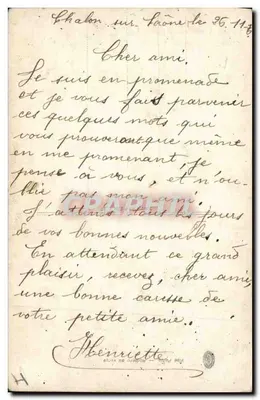 Chalon sur Saône le 26. 11
Cher ami.
Je suis en promenade
et je vous fait parvenir
ces quelques mots qui
vous prouveront que même
en me promenant, je
pense à vous, et n'ou-
blié pas mon
J'attends tous les jours
de vos bonnes nouvelles.
En attendant ce grand
plaisir, recevez, cher ami,
une bonne caresse de
votre petite amie.
Henriette
H
CPAPHIL